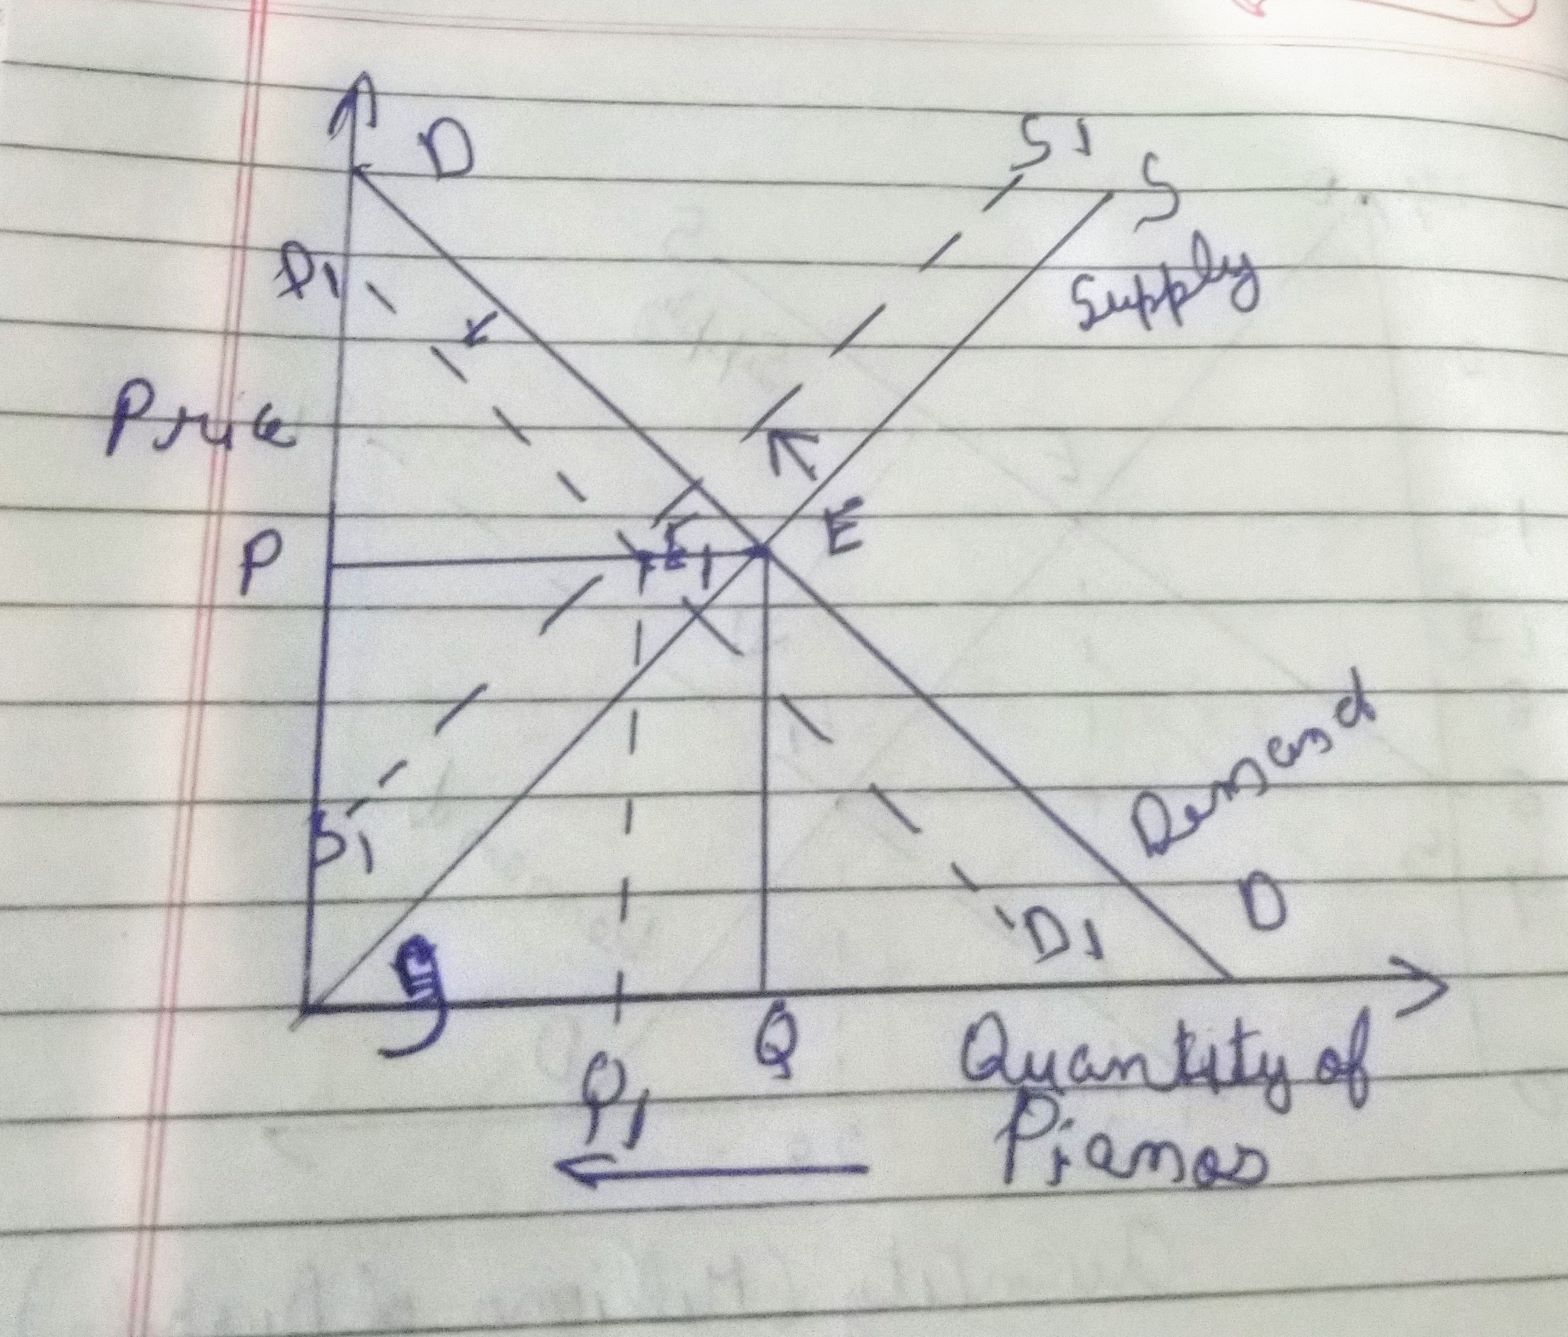 D
S1
S
Supply
D1
Price
P
E1
E
S1
Demand
D
D1
Q1
Q
Quantity of
Pianos